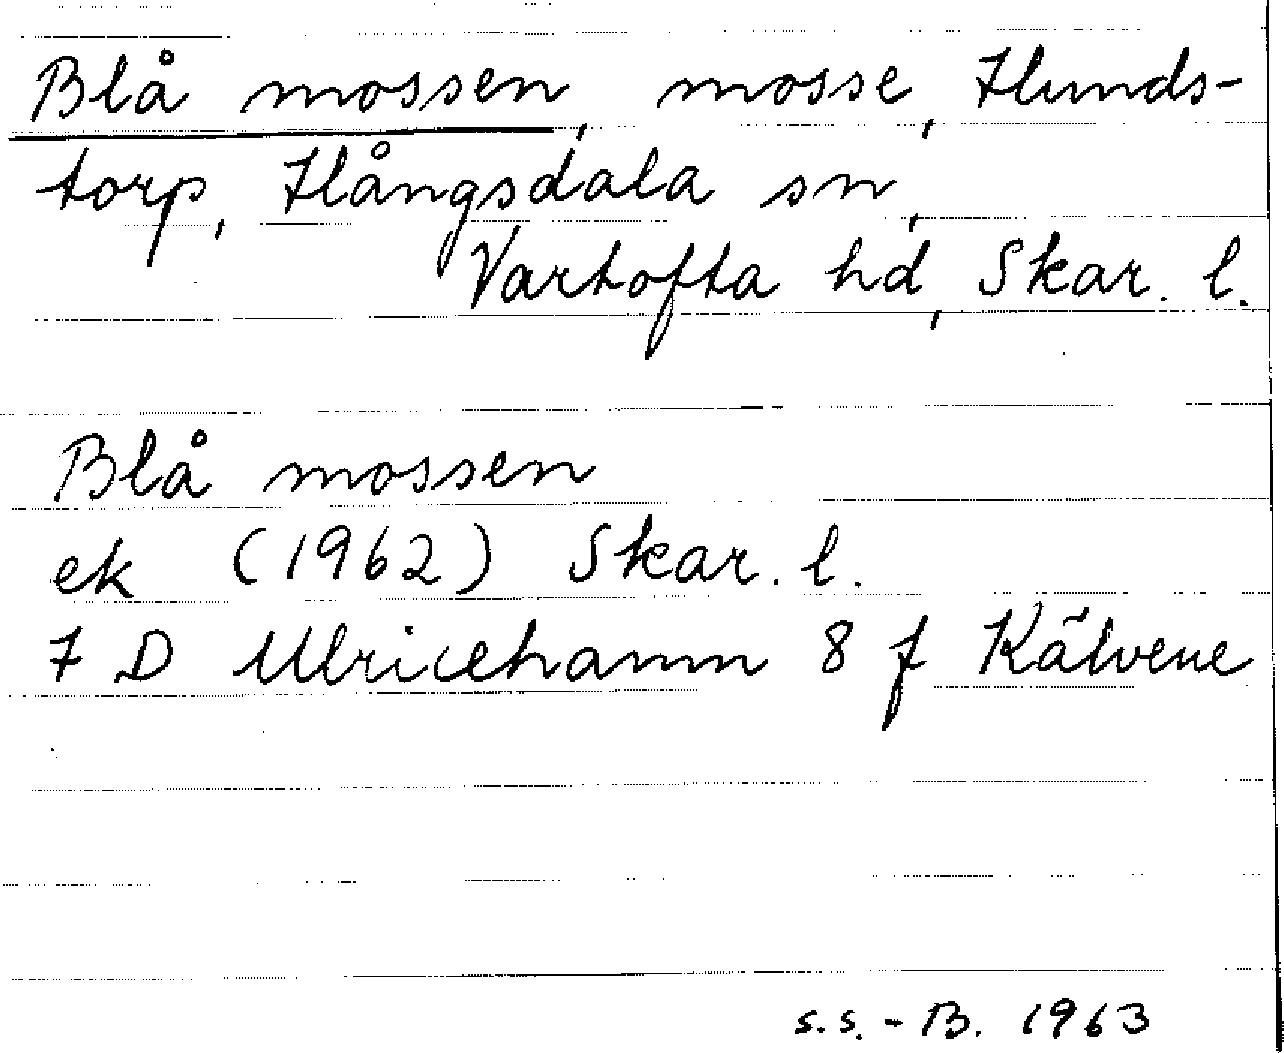 Blå mossen, mosse, Hunds-
torp, Hångsdala sn,
Vartofta hd, Skar. l.
Blå mossen
ek (1962) Skar. l.
7 D Ulricehamn 8 f Kälvene
s.s.-B. 1963